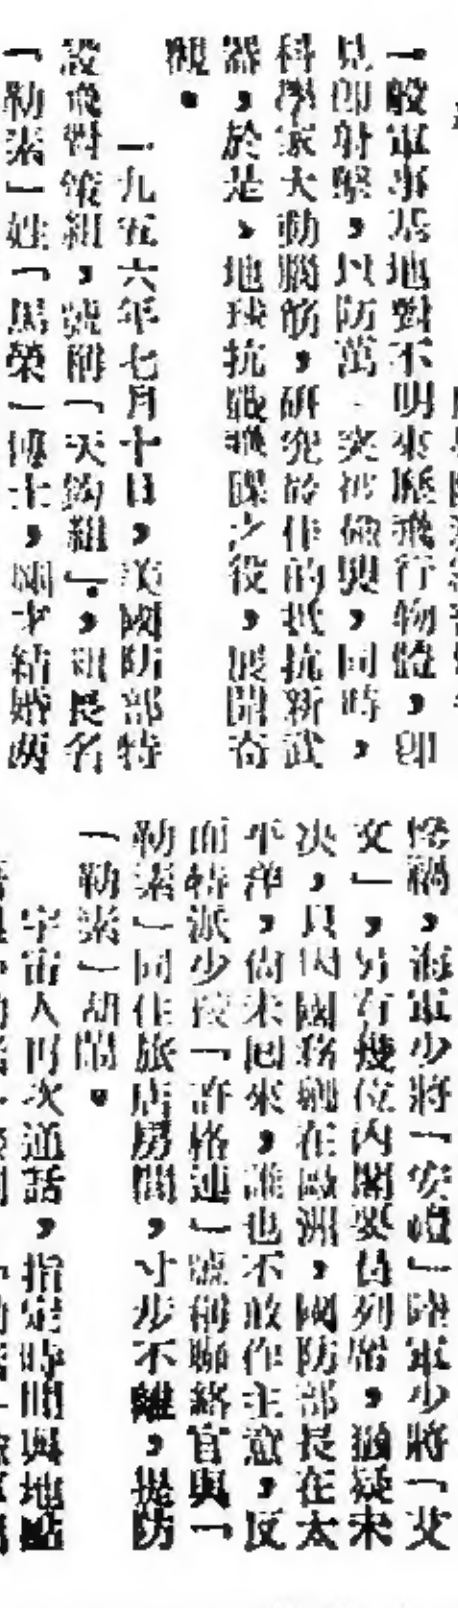 一般軍事基地對不明來歷飛行物體，卽
見卽射擊，以防萬一突被破與，同時，
科學家大動腦筋，研究於作的抵抗新武
器，於是，地球抗戰飛碟之役，展開奇
觀。
一九五六年七月十日，美國防部特
設飛對策組，號稱「天鈎組」，組長名
「勒素」姓「馬榮」博士，剛才結婚兩
怪禍，海軍少將「安嗌」陸軍少將「艾
文」，另有幾位內閣要員列席，猶疑未
決，只因國務卿在歐洲，國防部長在太
平洋，尙未回來，誰也不敢作主意，反
而特派少校「許格連」號稱聯絡官與「
勒素」同住旅店房間，寸步不離，提防
「勒素」胡鬧。
宇宙人再次通話，指定時間與地點